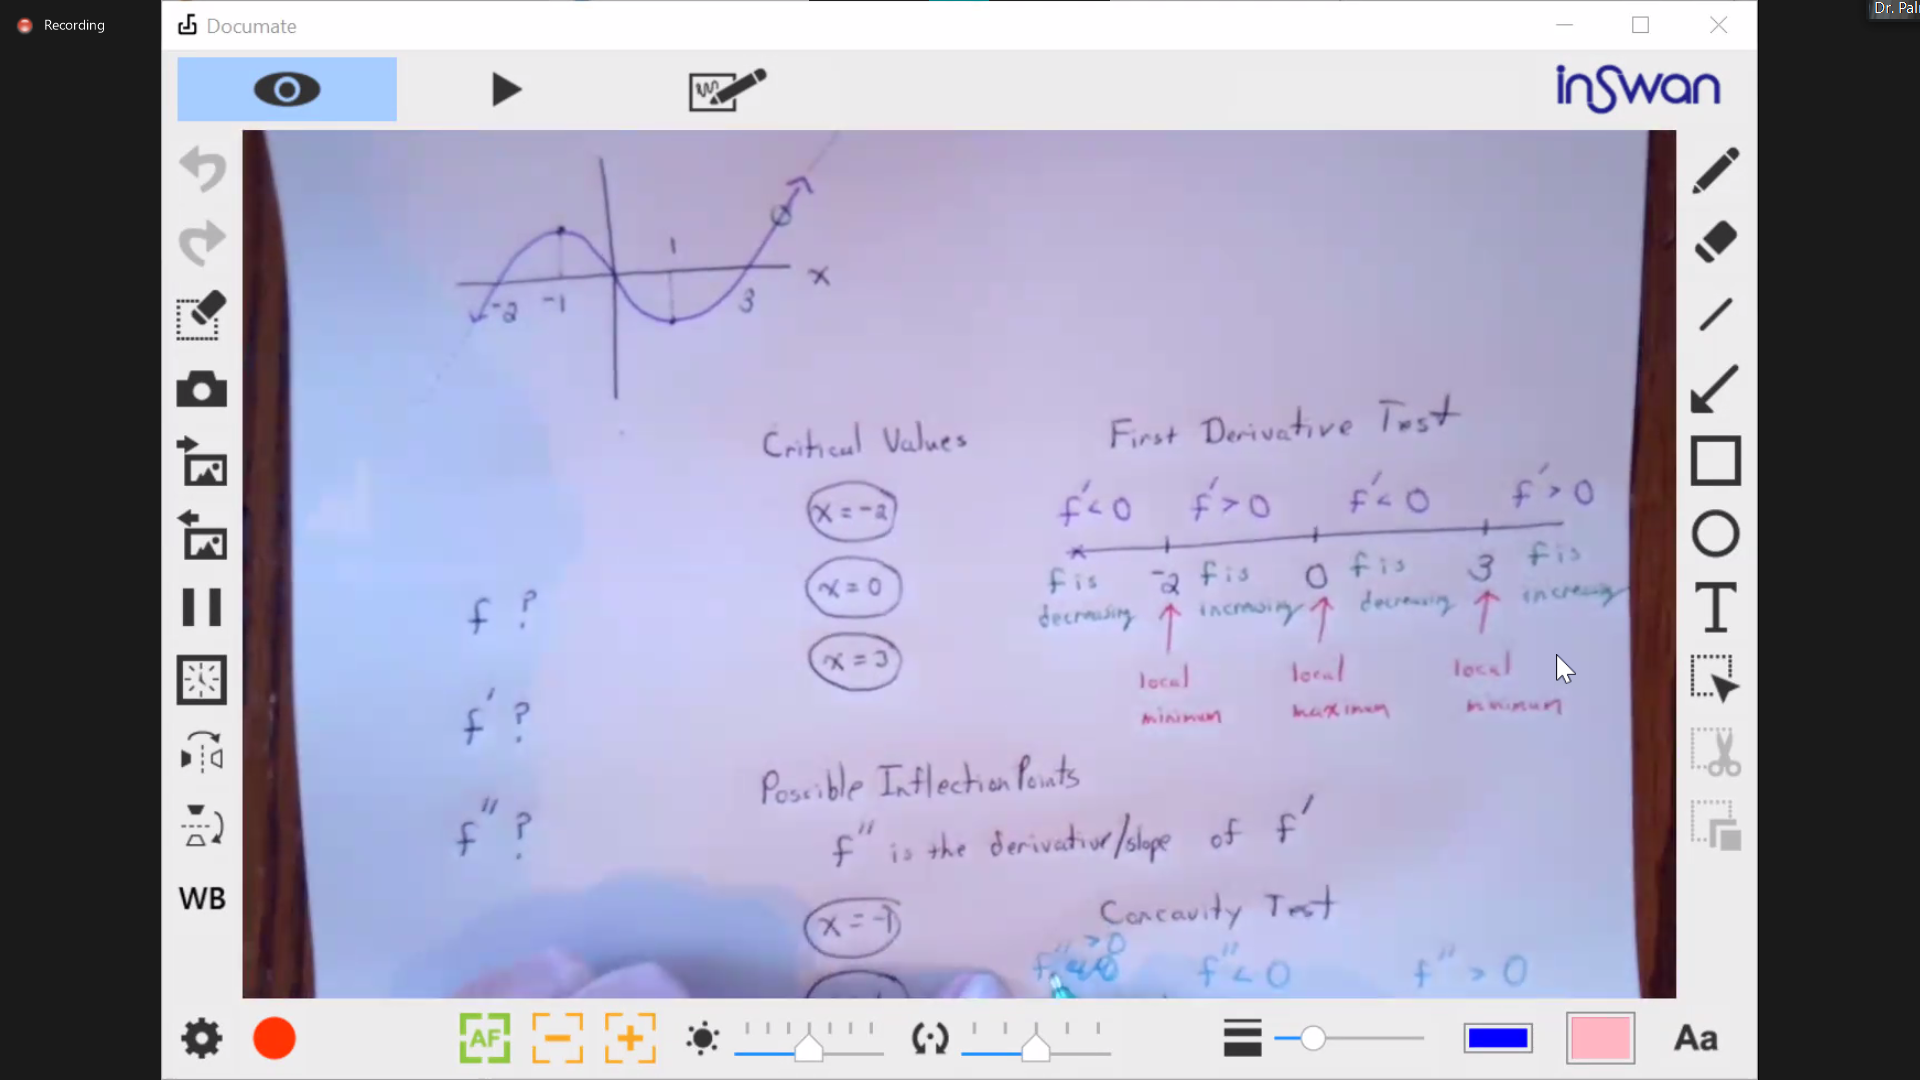 Recording
Documate
Dr. Pal
inSwan
1
x
-2 -1
3
Critical Values
x = -2
x = 0
x = 3
First Derivative Test
f' < 0 f' > 0 f' < 0 f' > 0
-2 0 3
f is decreasing
f is increasing
f is decreasing
f is increasing
local minimum
local maximum
local minimum
f ?
f' ?
f'' ?
Possible Inflection Points
f'' is the derivative/slope of f'
x = -1
Concavity Test
> 0
f'' < 0 f'' > 0
WB
AF
T
Aa